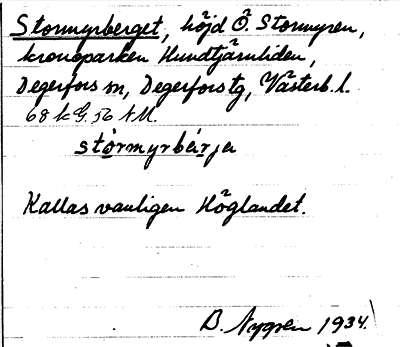 Stormyrberget, höjd Ö. Stormyren,
kronoparken Hundtjärnliden,
Degerfors sn, Degerfors tg, Västerb. l.
68 k G. 56 A M.
stòrmyrbær̀ja
Kallas vanligen Höglandet.
B. Nygren 1934.